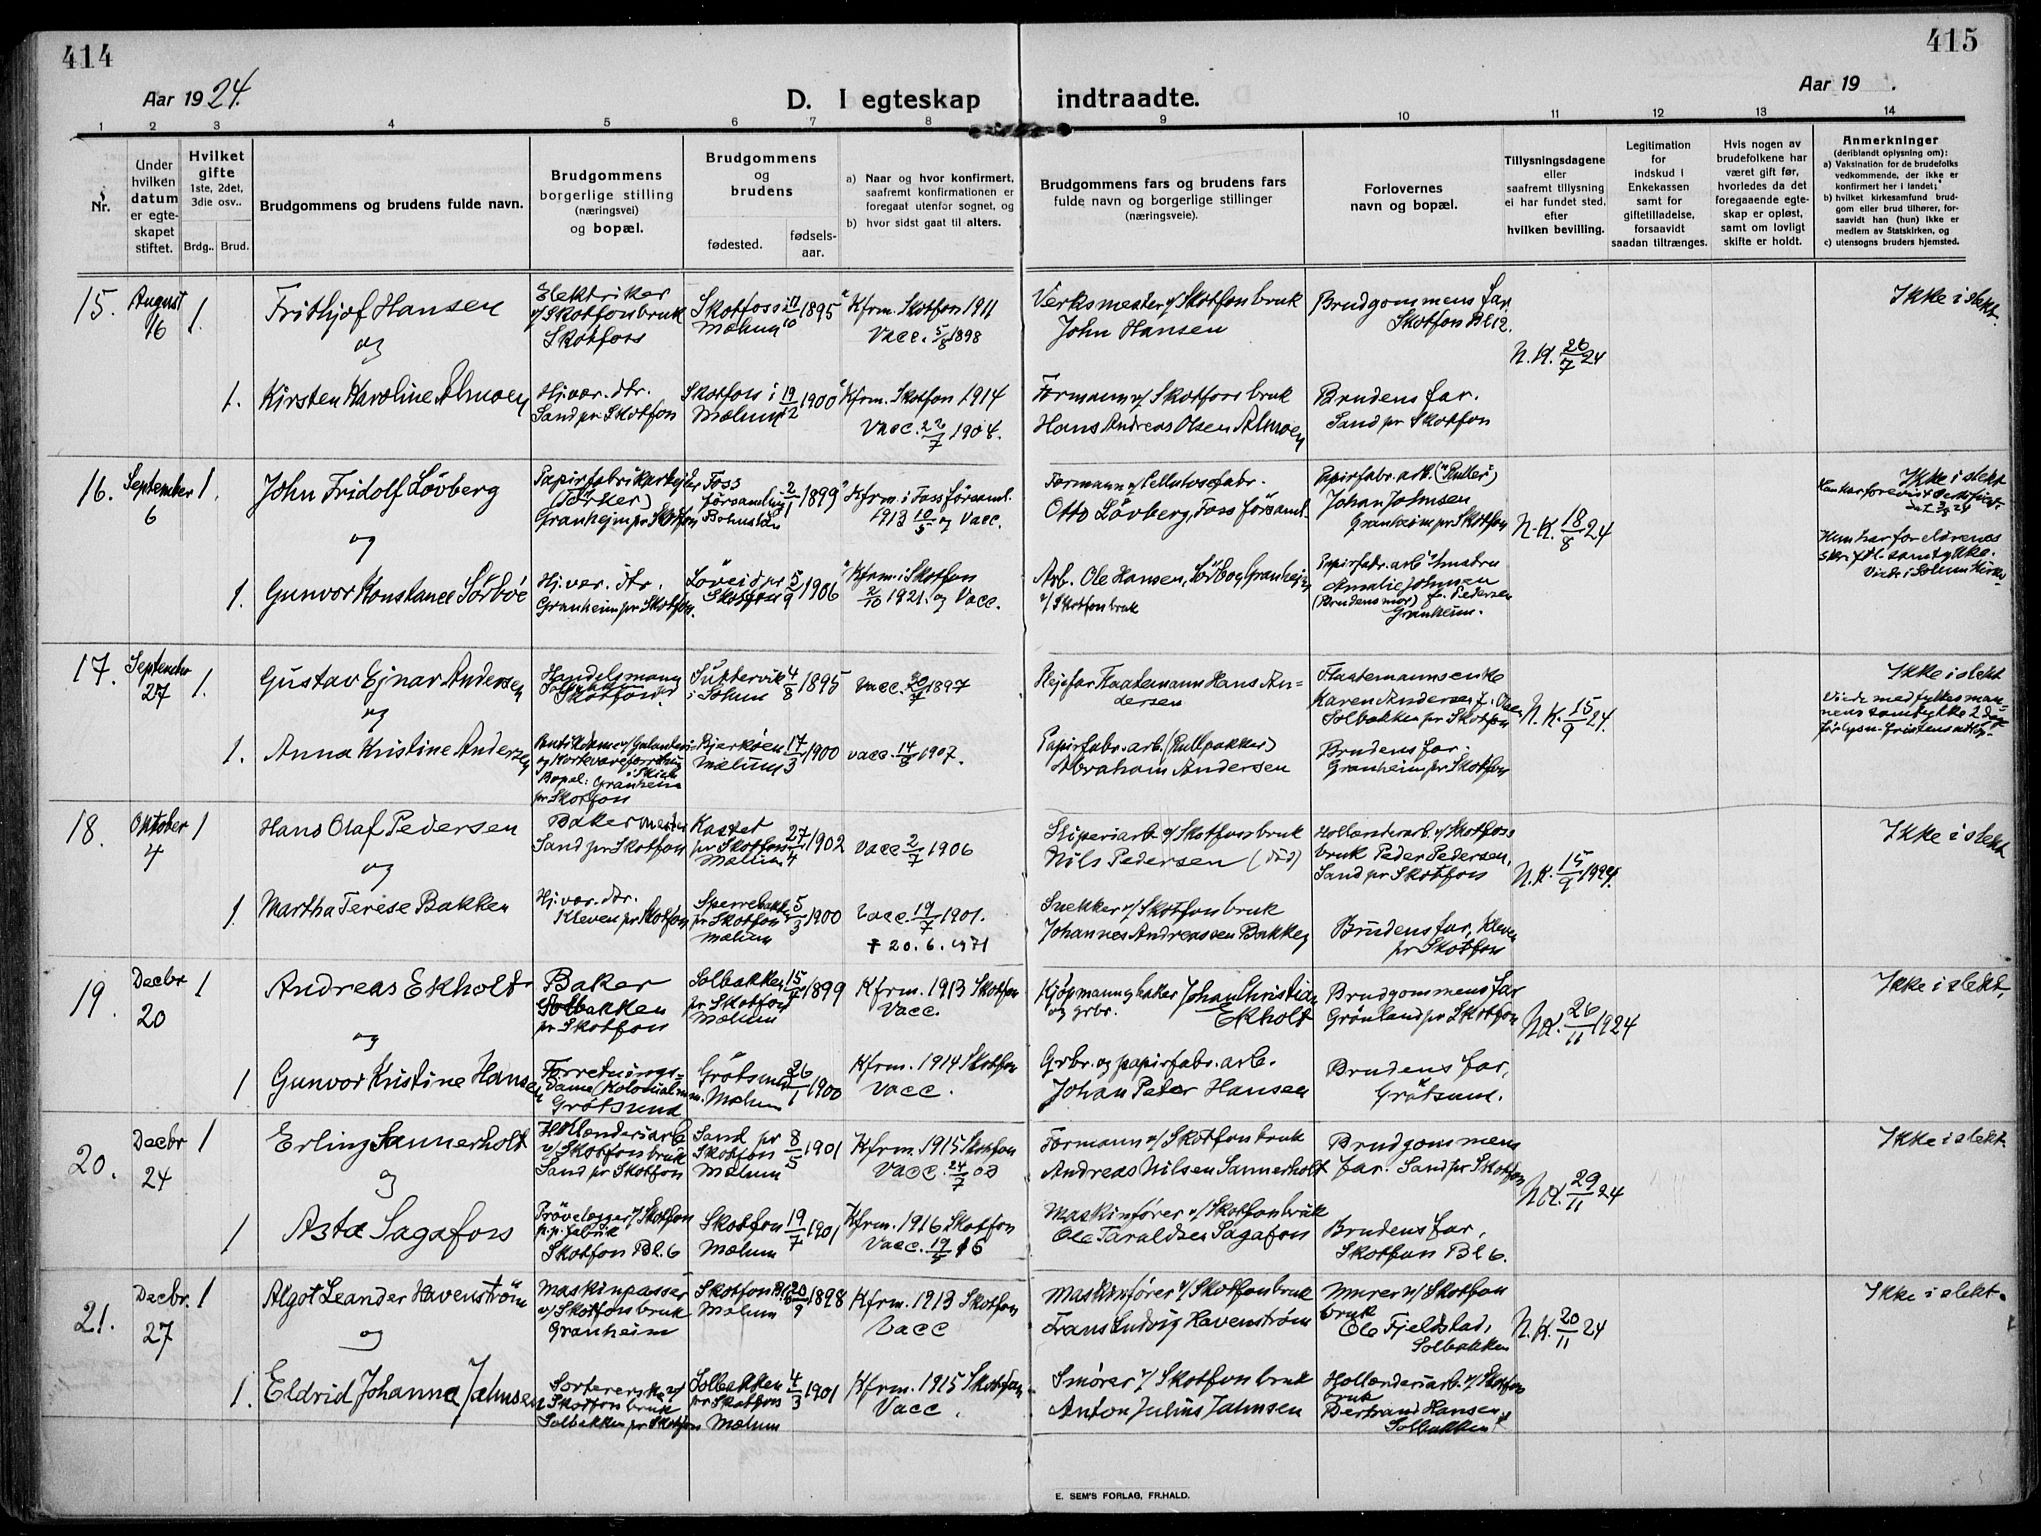 414
415
Aar 1924.
D. I egteskap indtraadte.
Aar 19 .
1 2 3 4 5 6 7 8 9 10 11 12 13 14
Nr.
Under hvilken datum er egte-skapet stiftet.
Hvilket gifte
1ste, 2det, 3die osv..
Brdg.. Brud.
Brudgommens og brudens fulde navn.
Brudgommens borgerlige stilling (næringsvei) og bopæl.
Brudgommens og brudens
fødested.
fødsels-aar.
a) Naar og hvor konfirmert, saafremt konfirmationen er foregaaet utenfor sognet, og
b) hvor sidst gaat til alters.
Brudgommens fars og brudens fars fulde navn og borgerlige stillinger (næringsveie).
Forlovernes navn og bopæl.
Tillysningsdagene eller saafremt tillysning ei har fundet sted, efter hvilken bevilling.
Legitimation for indskud i Enkekassen samt for giftetilladelse, forsaavidt saadan tiltrænges.
Hvis nogen av brudefolkene har været gift før, hvorledes da det foregaaende egte-skap er opløst, samt om lovligt skifte er holdt.
Anmerkninger
(deriblandt oplysning om):
a) Vaksination for de brudefolks vedkommende, der ikke er konfirmert her i landet;
b) hvilket kirkesamfund brud-gom eller brud tilhører, for-saavidt han (hun) ikke er medlem av Statskirken, og
c) utensogns bruders hjemsted.
15. August 16 1.
Frithjof Hansen
og
Elektriker v/Skotfos bruk Skotfoss
Skotfoss i Mælum 11/10 1895
Kfrm. Skotfos 1911
Vacc. 5/8 1898
Verksmester v/Skotfos bruk
John Hansen
Brudgommens far.
Skotfos Bl 12.
N. K. 26/7 24
Ikke i slekt.
1. Kirsten Karoline Almoen
Hj.vær. dtr.
Sand pr Skotfos
Skotfoss i Mælum 19/12 1900
Kfrm. Skotfos 1914
Vacc. 22/7 1904.
Formann v/Skotfoss bruk
Hans Andreas Olsen Almoen
Brudens far.
Sand pr Skotfos
16. September 6 1.
John Fridolf Lövberg
og
Papirfabrikarbeider
Granheim pr Skotfos
Foss församling Bohuslän 2/1 1899
Kfrm. i Foss församl.
1913 10/5 og Vacc.
Formann v/Cellulosefabr.
Otto Lövberg, Foss församl.
Papirfabr. arb.
Johan Johnsen
Granheim pr Skotfos
N. K. 18/8 24
Ikke i slekt
Hun har foreldrenes
skriftl. samtykke.
Viede i Solum Kirke
1. Gunvor Konstance Sörboe
Hj.vær. dtr.
Granheim pr Skotfos.
Löveid pr Skotfos 5/9 1906
Kfrm. i Skotfos
2/10 1921. og Vacc.
Arb. Ole Hansen Sörbo, Granheim
v/Skotfos bruk
Amalie Johnsen
(Brudens mor) f. Pedersen
Granheim.
17. September 27 1.
Gustav Ejnar Andersen
og
Handelsmann
Skotfoss
i Solum 4/8 1895
Vacc. 20/7 1897
Flaatemann Hans An-
dersen
Flaatemannsenke
Karen Andersen f. Olsen
Solbakken pr Skotfos
N. K. 15/9 24.
Ikke i slekt
Viede med fylkesman-
nens samtykke 2 dage
1. Anna Kristine Andersen
Bopæl: Granheim
pr Skotfos
Bjerkøen Mælum 17/3 1900
vacc. 14/8 1907.
Papirfabr. arb. (Rullpakker)
Abraham Andersen
Brudens far.
Granheim pr Skotfos
18. Oktober 4 1
Hans Olaf Pedersen
og
Bakermester
Sand pr Skotfos
Kastet pr Skotfoss Mælum 27/4 1902
Vacc 2/7 1906
Sliperiarb. v/Skotfoss bruk
Nils Pedersen (død)
Hollenderarb. v/Skotfoss
bruk Peder Pedersen,
Sand pr Skotfoss
N. K. 15/9 1924.
Ikke i slekt
1. Martha Terese Bakken
Hj.vær. dtr.
Kleven pr Skotfos
Sperrebakken pr Skotfos Mælum 5/3 1900
Vacc. 19/7 1901.
† 20. 6. 1971
Snekker v/Skotfos bruk
Johannes Andreassen Bakken
Brudens far, Kleven
pr Skotfos
19. Decbr 20 1
Andreas Ekholt
og
Baker
Solbakken
pr Skotfos
Solbakken pr Skotfos Mælum 15/7 1899
Kfrm. 1913 Skotfos
Vacc.
Kjøpmann og baker Johan Christian
og grbr. Ekholt
Brudgommens far
Grönland pr Skotfos
N. K. 26/11 1924
Ikke i slekt,
1 Gunvor Kristine Hansen
Forretnings-
dame (Kolonial)
Grötsund
Grötsund Mælum 26/1 1900
Kfrm. 1914 Skotfos
Vacc.
Grbr. og papirfabr. arb.
Johan Peter Hansen
Brudens far,
Grötsund.
20. Decbr 24 1
Erling Sannerholt
og
Hollenderiarb.
v/Skotfos bruk
Sand pr Skotfos
Sand pr Skotfos Mælum 8/5 1901
Kfrm. 1915 Skotfos
Vacc. 24/7 02
Formann v/Skotfos bruk
Andreas Nilsen Sannerholt
Brudgommens
far. Sand pr Skotfos
N. K. 29/11 24
Ikke i slekt
1 Asta Sagafoss
Prövelegger v/Skotfos
p.p. fabrik
Skotfos Bl. 6
Skotfos Mælum 19/7 1901
Kfrm. 1916 Skotfos
Vacc. 19/5 16
Maskinfører v/Skotfos bruk
Ole Taraldsen Sagafos
Brudens far,
Skotfos Bl 6.
21. Decbr. 27 1
Algot Leander Havenström
og
Maskinpasser
v/Skotfos bruk
Granheim
Skotfos Mælum 20/9 1898
Kfrm. 1913 Skotfos
Vacc
Maskinfører v/Skotfos bruk
Frans Ludvig Havenström
Murer v/Skotfos
bruk
Ole Fjeldstad,
Solbakken
N. K. 20/11 24
Ikke i slekt.
1. Eldrid Johanna Jahnsen
Sortererske v/
Skotfos bruk
Solbakken pr Skotfos
Solbakken pr Skotfoss Mælum 4/3 1901
Kfrm. 1915 Skotfos
Vacc.
Smører v/Skotfos bruk
Anton Julius Jahnsen
Hollenderiarb. v/Skotfos
bruk
Bertrand Hansen
Solbakken
E. SEM'S FORLAG, FR.HALD.